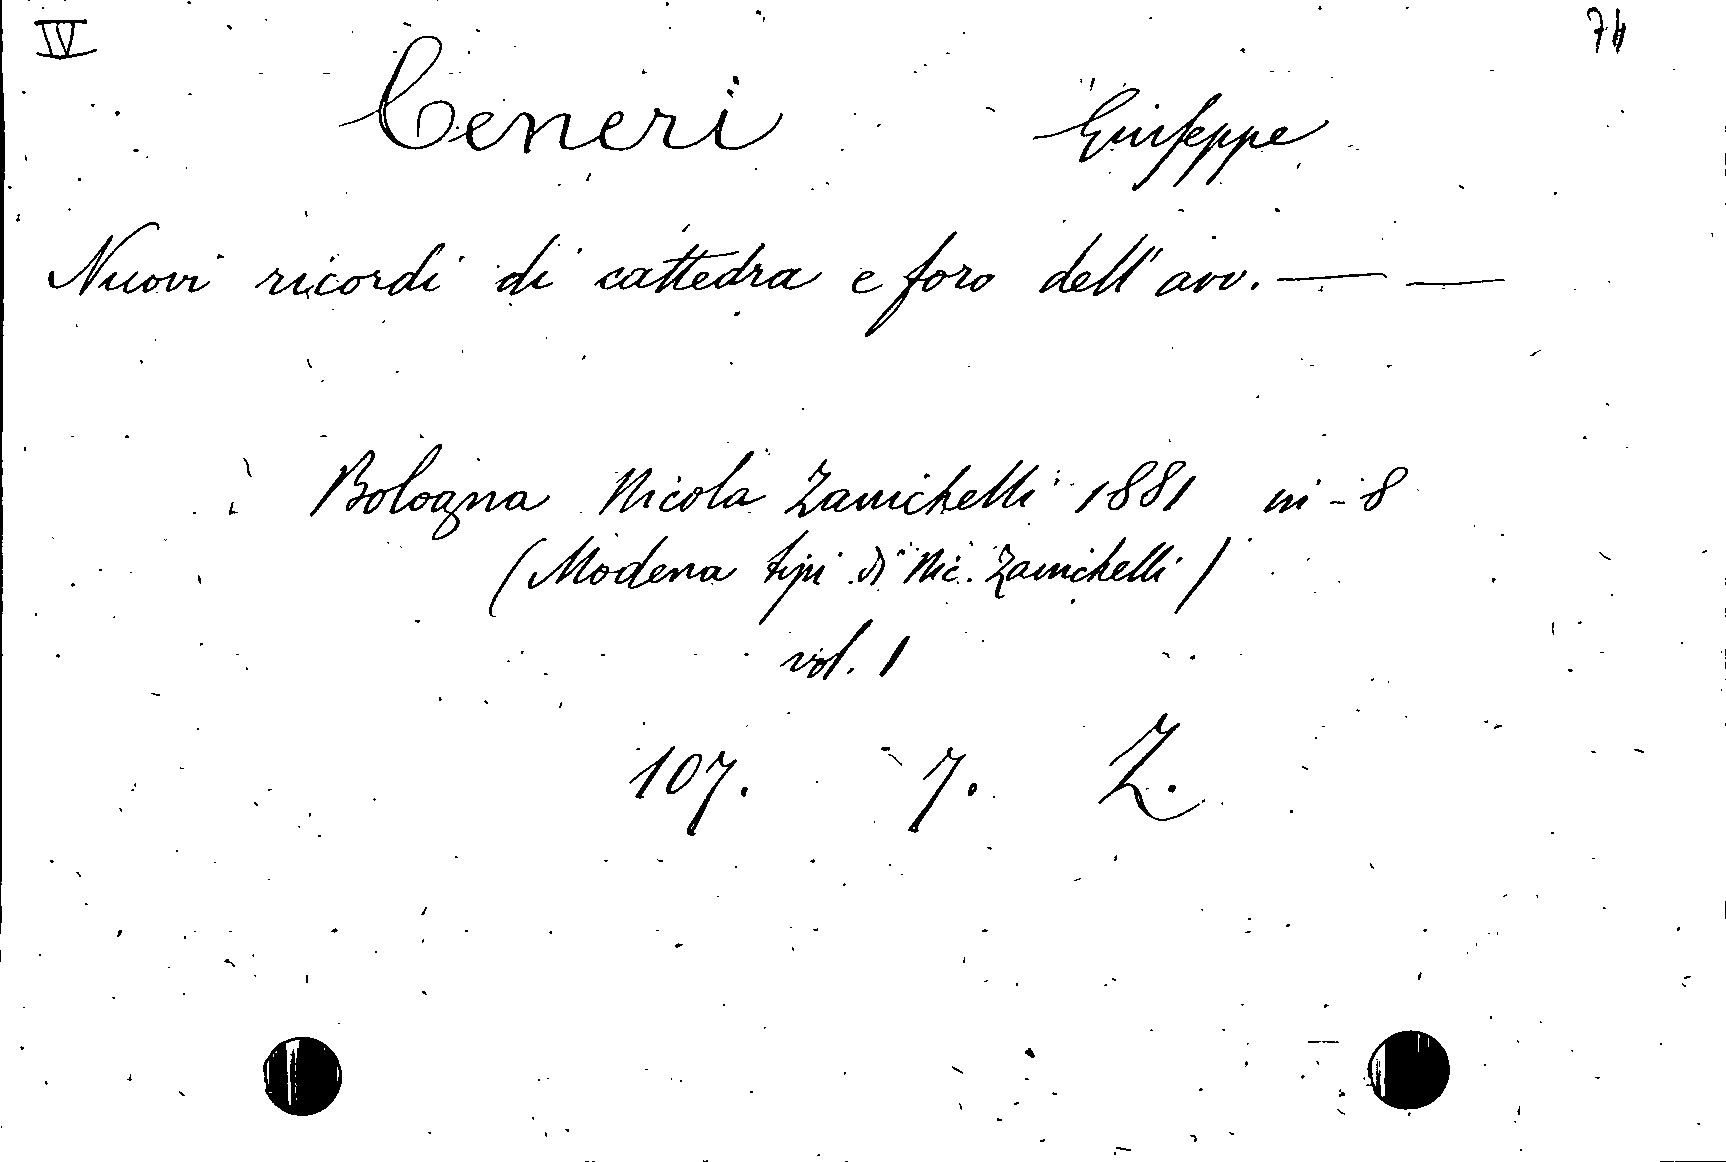 IV 74
Ceneri Giuseppe
Nuovi ricordi di cattedra e foro dell'avv. — —
Bologna Nicola Zanichelli 1881 in-8
(Modena tipi di Nic. Zanichelli)
vol. 1
107. 7. Z.